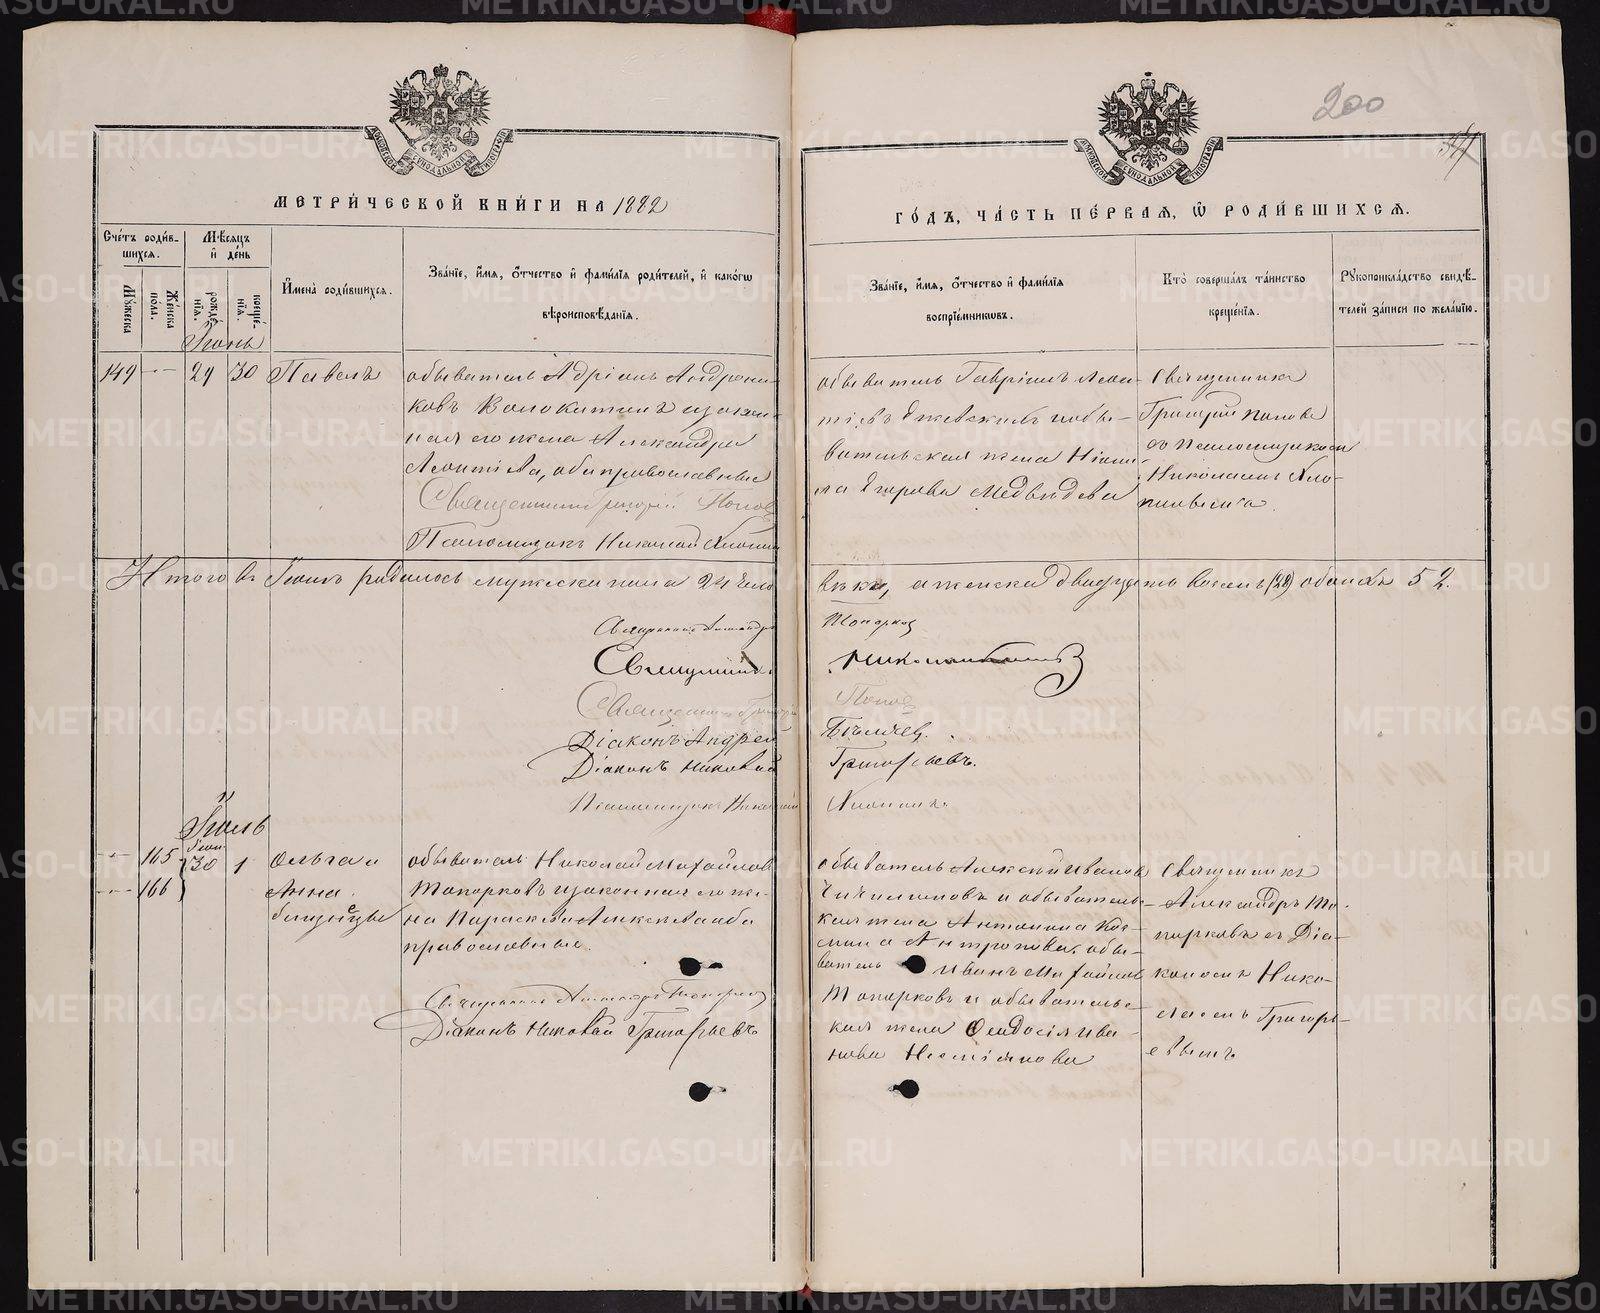 200
МЕТРИ́ЧЕСКОЙ КНИ́ГИ НА 1882
ГО́ДЪ, ЧА́СТЬ ПЕ́РВАЯ, Ѿ РОДИ́ВШИХСЯ.
Сче́тъ роди́в-
шихся.
Му́жеска
Же́нска
пола.
Мѣ́сяцъ
и҆ де́нь
рожде́-
нїя.
креще́-
нїя.
И҆мена̀ роди́вшихся.
Зва́нїе, и҆́мя, ѻ҆́тчество и҆ фами́лїя роди́телей, и҆ како́гѡ
вѣроисповѣ́данїя.
Зва́нїе, и҆́мя, ѻ҆́тчество и҆ фами́лїя
воспрїе́мниковъ.
Кто̀ соверша́лъ та́инство
креще́нїя.
Рукоприкла́дство свидѣ́-
телей за́писи по жела́нїю.
Іюнь
149 29 30 Павелъ
обыватель Адріанъ Андрони-
ковъ Волокитинъ и законн
ная его жена Александра
Леонтіева, оба православные
Священникъ Григорій Попов
Псаломщикъ Николай Хлопин
обыватель Гавріилъ Леон-
тіевъ и обы-
вательская жена
Егорова Медвѣдева
Священникъ
Григорій Поповъ
съ Псаломщикомъ
Николаемъ Хло-
Итого въ Іюнѣ родилось мужеска пола 24 чело
вѣкъ, а женска двадцать восемь (28) обоихъ 52.
Священникъ Александръ Топорков
Священникъ
Священникъ Григорій Попов
Діаконъ Андрей Бѣляев.
Діаконъ Николай Григорьевъ.
Псаломщикъ Николай Хлопинъ.
Іюль
165
166
Іюн
30 1
Ольга и
Анна
близнецы
обыватель Николай Михайлов
Топорковъ и законная его же-
на Параскева Алексѣева оба
православные.
Священникъ Александръ Топорков
Діаконъ Николай Григорьевъ
обыватель Алексѣй Ивановъ
и обыватель-
ская жена Антонина Кос-
мина Антропова. обы-
ватель Иванъ Михайловъ
Топорковъ и обыватель-
ская жена Ѳеодосія Ива-
нова
Священникъ
Александръ То-
порковъ съ Діа-
кономъ Нико-
лаемъ Григорь-
евымъ
METRIKI.GASO-URAL.RU